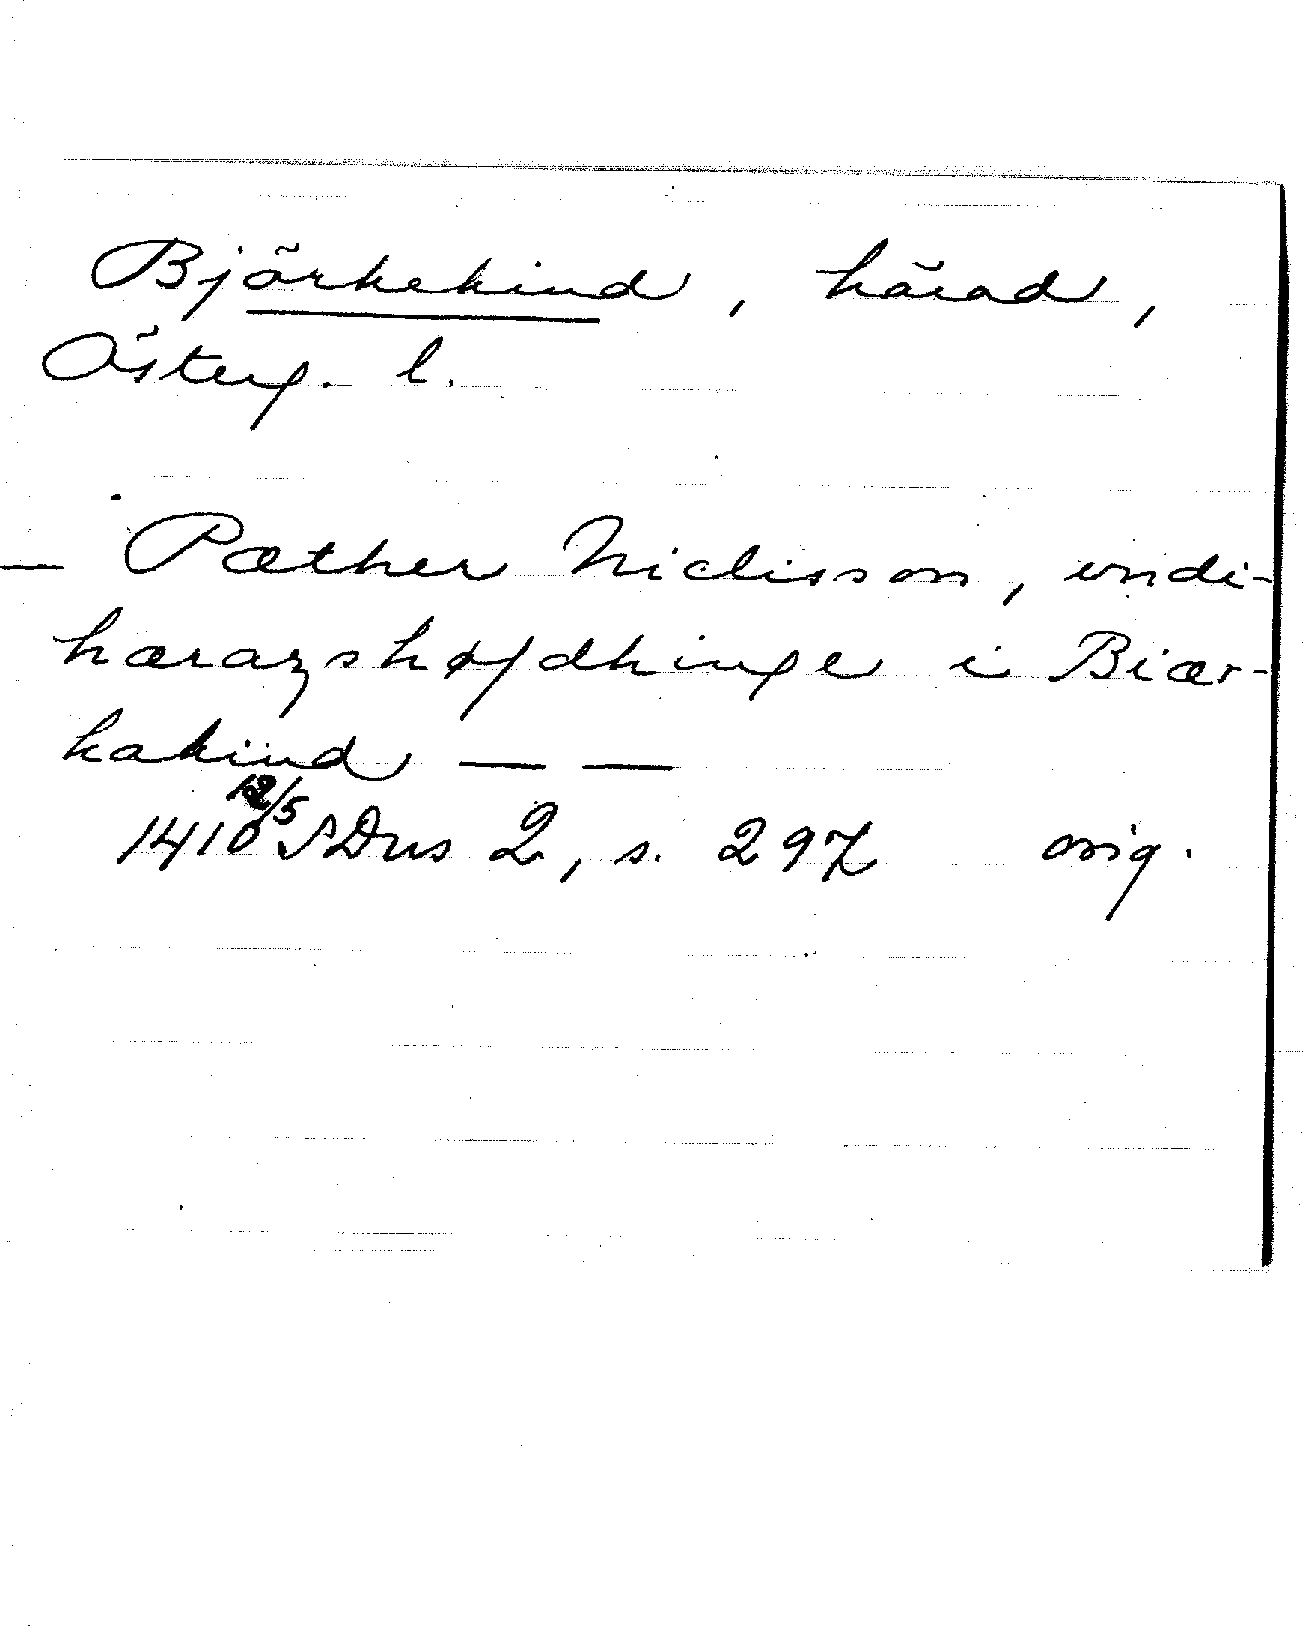 Björkekind, härad,
Österg. l.
— Pæther Niclisson, vndi-
hærazshøfdhinge i Biær-
kakind — —
1410 12/5 SDns 2, s. 297 orig.